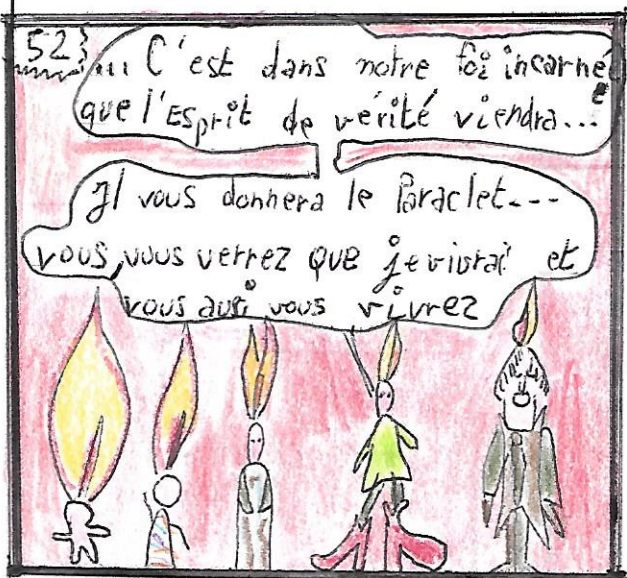 52
... C'est dans notre foi incarnée
que l'Esprit de vérité viendra...
Il vous donnera le Paraclet...
vous, vous verrez que je vivrai et
vous ausi vous vivrez